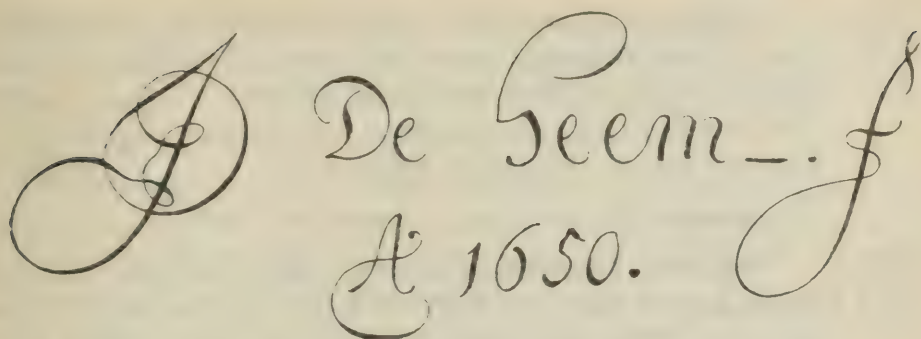 JD De Heem_. f
A° 1650.